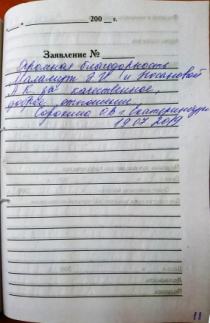 200 г.
Заявление №
Огромная благодарность
и
за качественное,
доброе отношение
Сорокина О.В. г. Екатеринбург
19.07.2019
11